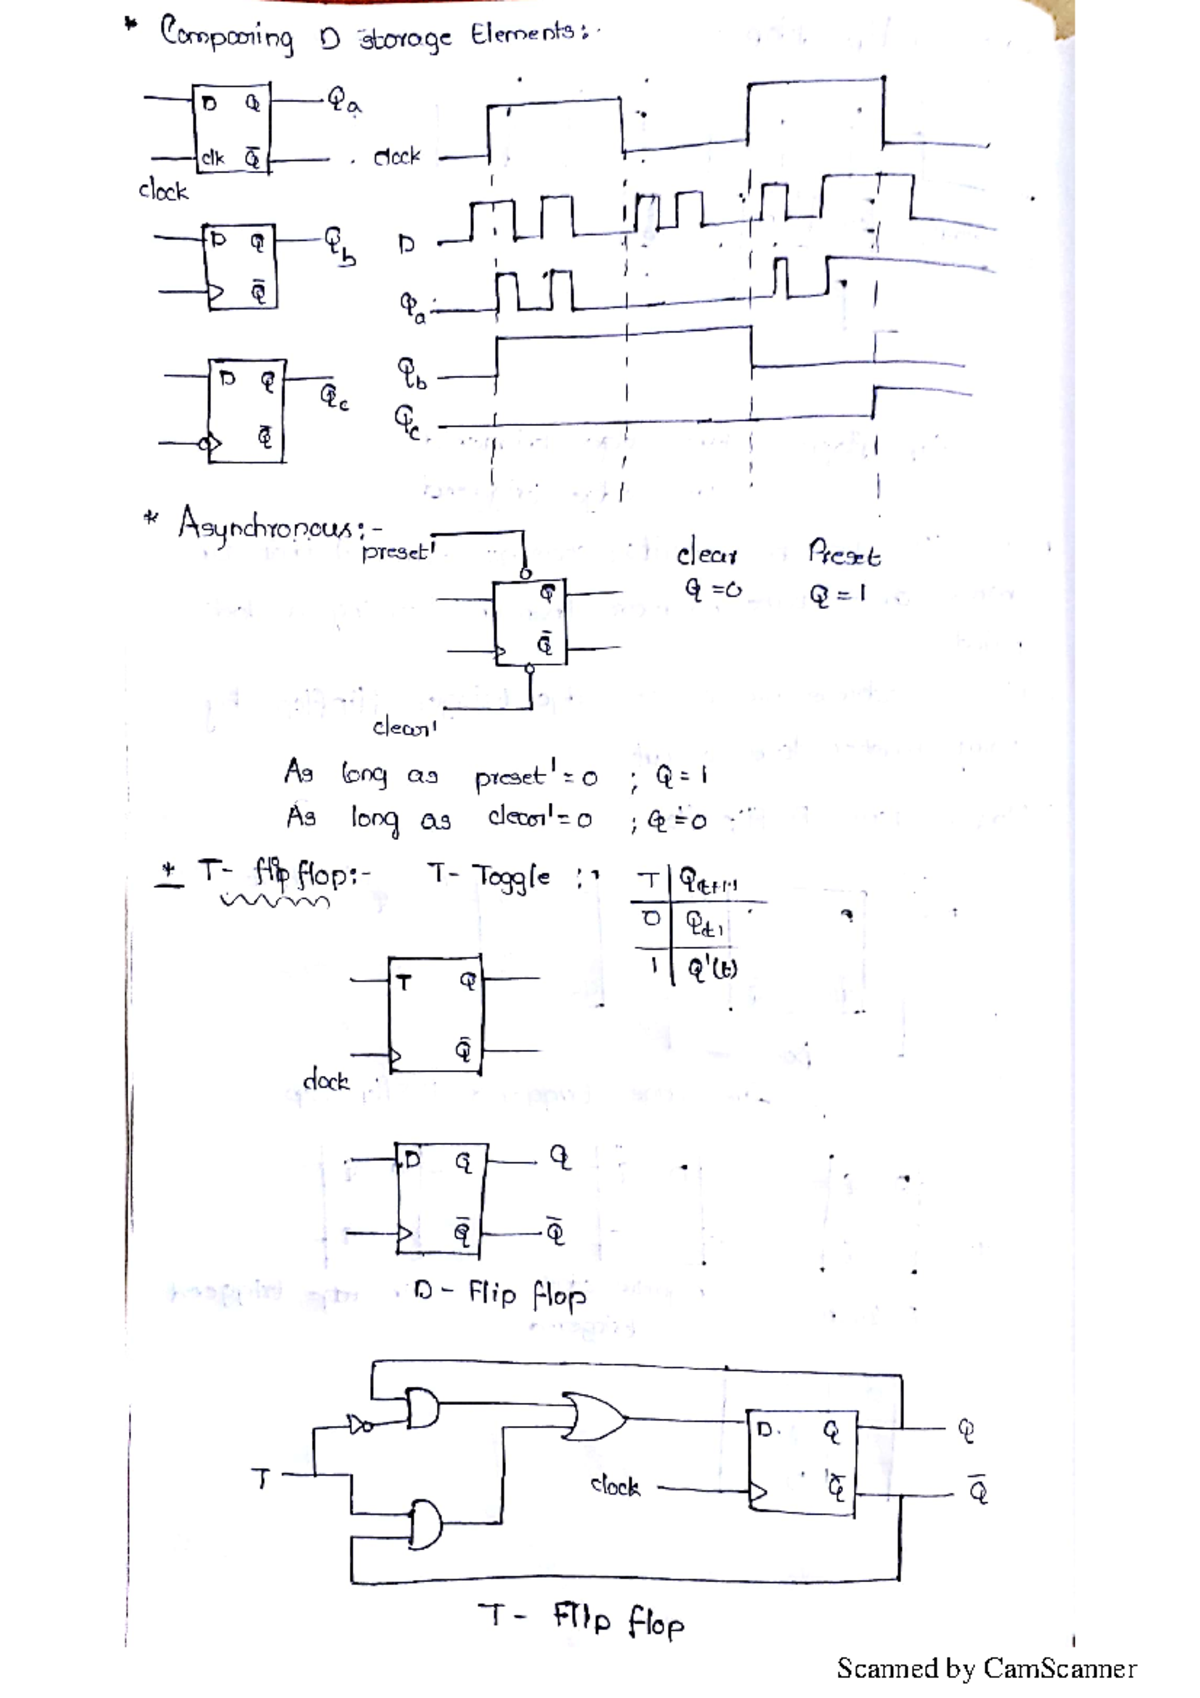 * Comparing D storage Elements:-
D Q Qa
clk Q̅
clock
clock
D Q Qb
Q̅
D
Qa
D Q Qc
Q̅
Qb
Qc
* Asynchronous:-
preset'
Q
Q̅
clear'
clear Preset
Q=0 Q=1
As long as preset'=0 ; Q=1
As long as clear'=0 ; Q=0
* T- flip flop:- T- Toggle :
T Q(t+1)
0 Q(t)
1 Q'(t)
T Q
Q̅
clock
D Q Q
Q̅ Q̅
D- Flip flop
T
clock
D Q Q
Q̅ Q̅
T- Flip flop
Scanned by CamScanner